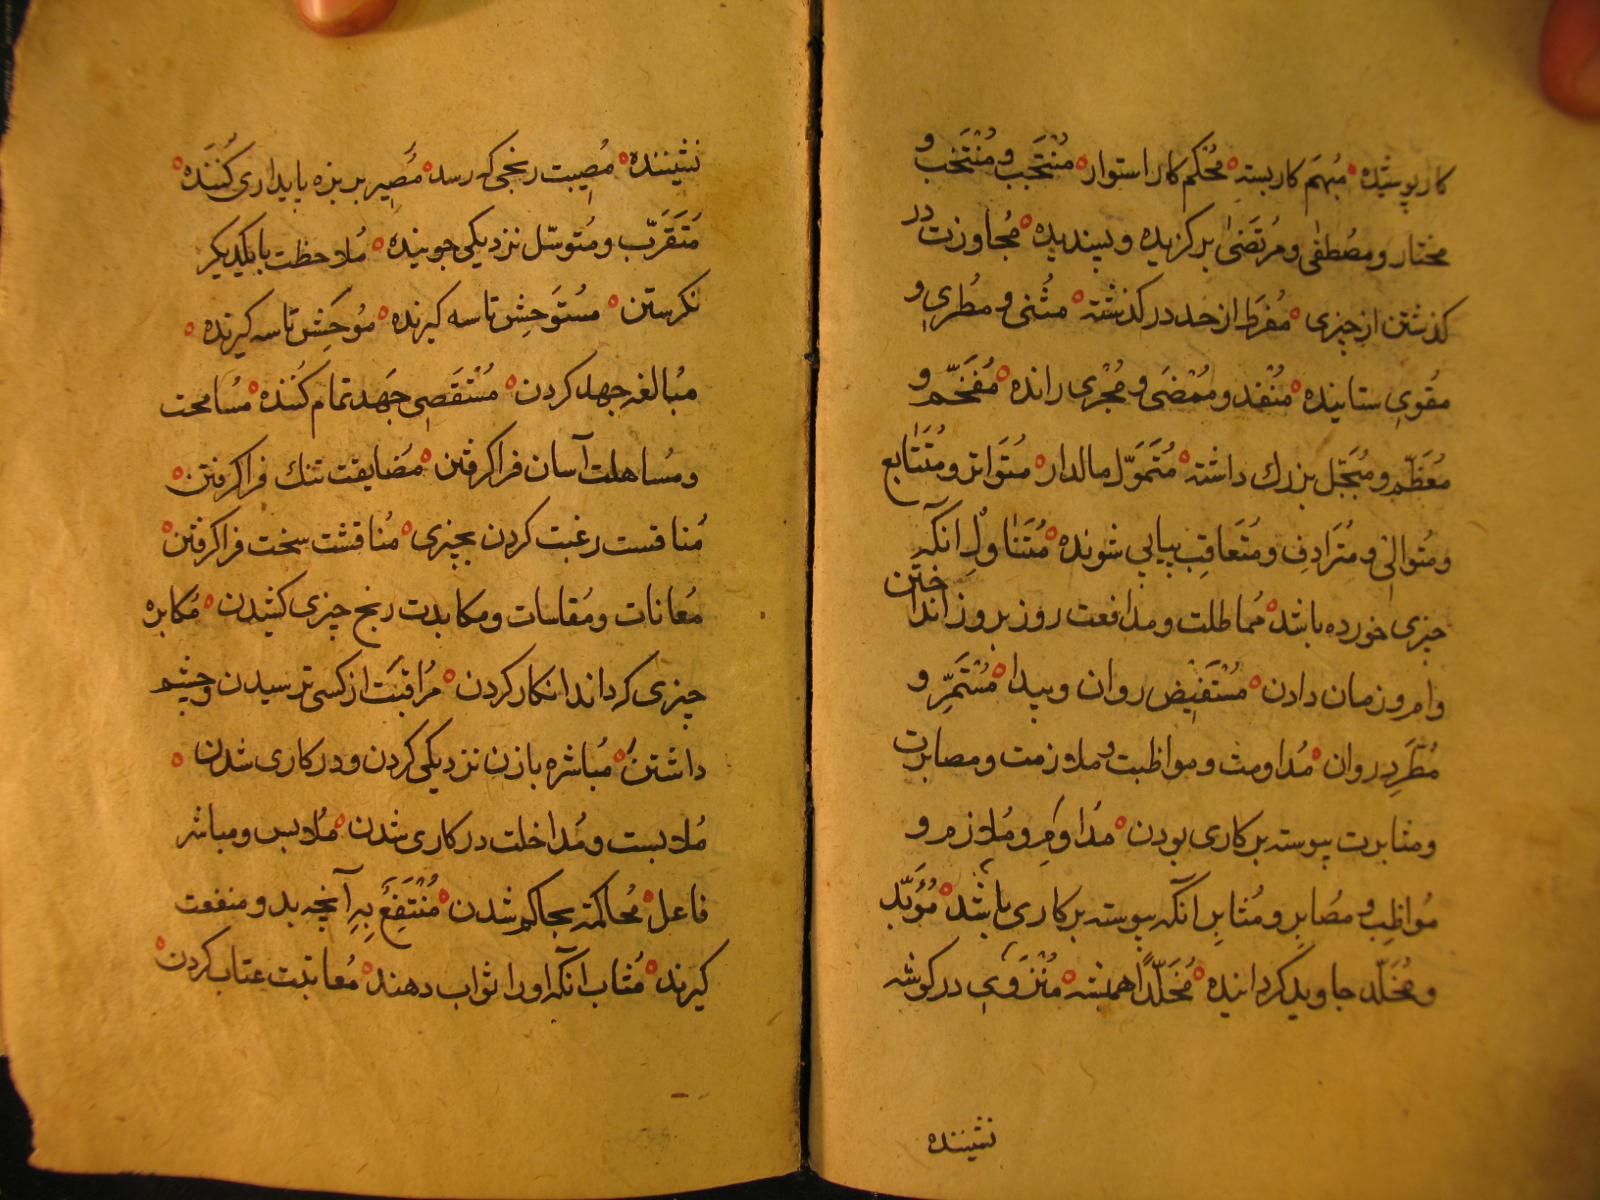 کار پوشیده مُبهَم کار بسته مُحْکم کار استوار مُنْتَجَب و مُنْتَخَب و
مختار و مصُطفٰی و مرُتَضٰی برکزیده و پسندیده مُجاوزت در
کذشتن از چیزی مُفْرِط از حد درکذشته مثُنی و مُطْری و
مُقوی ستاینده مُنْفَد و مُمْضَی و مُجْری رانده مُفَخَّم و
مُعَظَّم و مُبَجَّل بزرك داشته مُتَمَوِّل مالدار متواتر و مُتَتابع
و مُتوالی و مُتَرَادِف و مُتَعاقِب پیاپی شونده مُتَنَاوِل آنکه
چیزی خورده باشد مُماطلت و مدافعت روز بروز انداختن
و امروز زمان دادن مُسْتَفیض روان و پیدا مُسْتَمِرّ و
مُطَّرِد روان مُداومت و مواظبت و ملازمت و مصابرت
و مثابرت پیوسته بر کاری بودن مُداوِم و مُلازم و
مُواظِب و مصُابِر و مُثابِر آنکه پیوسته بر کاری باشد مُؤَبَّد
و مُخَلَّد جاوید کردانیده مُخَلَّدًا همیشه مُنْزَوِی در کوشه
نشیننده
نشیننده مُصِیبت رنجی که رسد مُصِیر بر بزه پایداری کُنَنَده
مُتَقَرِّب و مُتوسّل نزدیکی جوینده مُلاحظت با یکدیکر
نکرستن مستَوَحِش تاسه کیرنده مُوحَِش تاسه کیرنده
مُبالغه جهد کردن مُسْتَقَصِی جَهد تمام کُنَنده مُسامحت
و مُساهلت آسان فرا کرفتن مُضایقت تنك فرا کرفتن
مُنافست رغبت کردن بچیزی مُناقشت سخت فرا کرفتن
مُعانات و مُقاسات و مکابدت رنج چیزی کشیدن مُکابره
چیزی که داند انکار کردن مُراقبَت از کسی ترسیدن و چشم
داشتن مُباشره با زن نزدیکی کردن و در کاری شدن
مُلابست و مُداخلت در کاری شدن مُلابس و مباشر
فاعل مُحاکمة بحاکم شدن مُنْتَفِعْ بِهِ آنچه بد و منفعت
کیرند مُثاب آنکه او را ثواب دهند مُعاتبت عتاب کردن